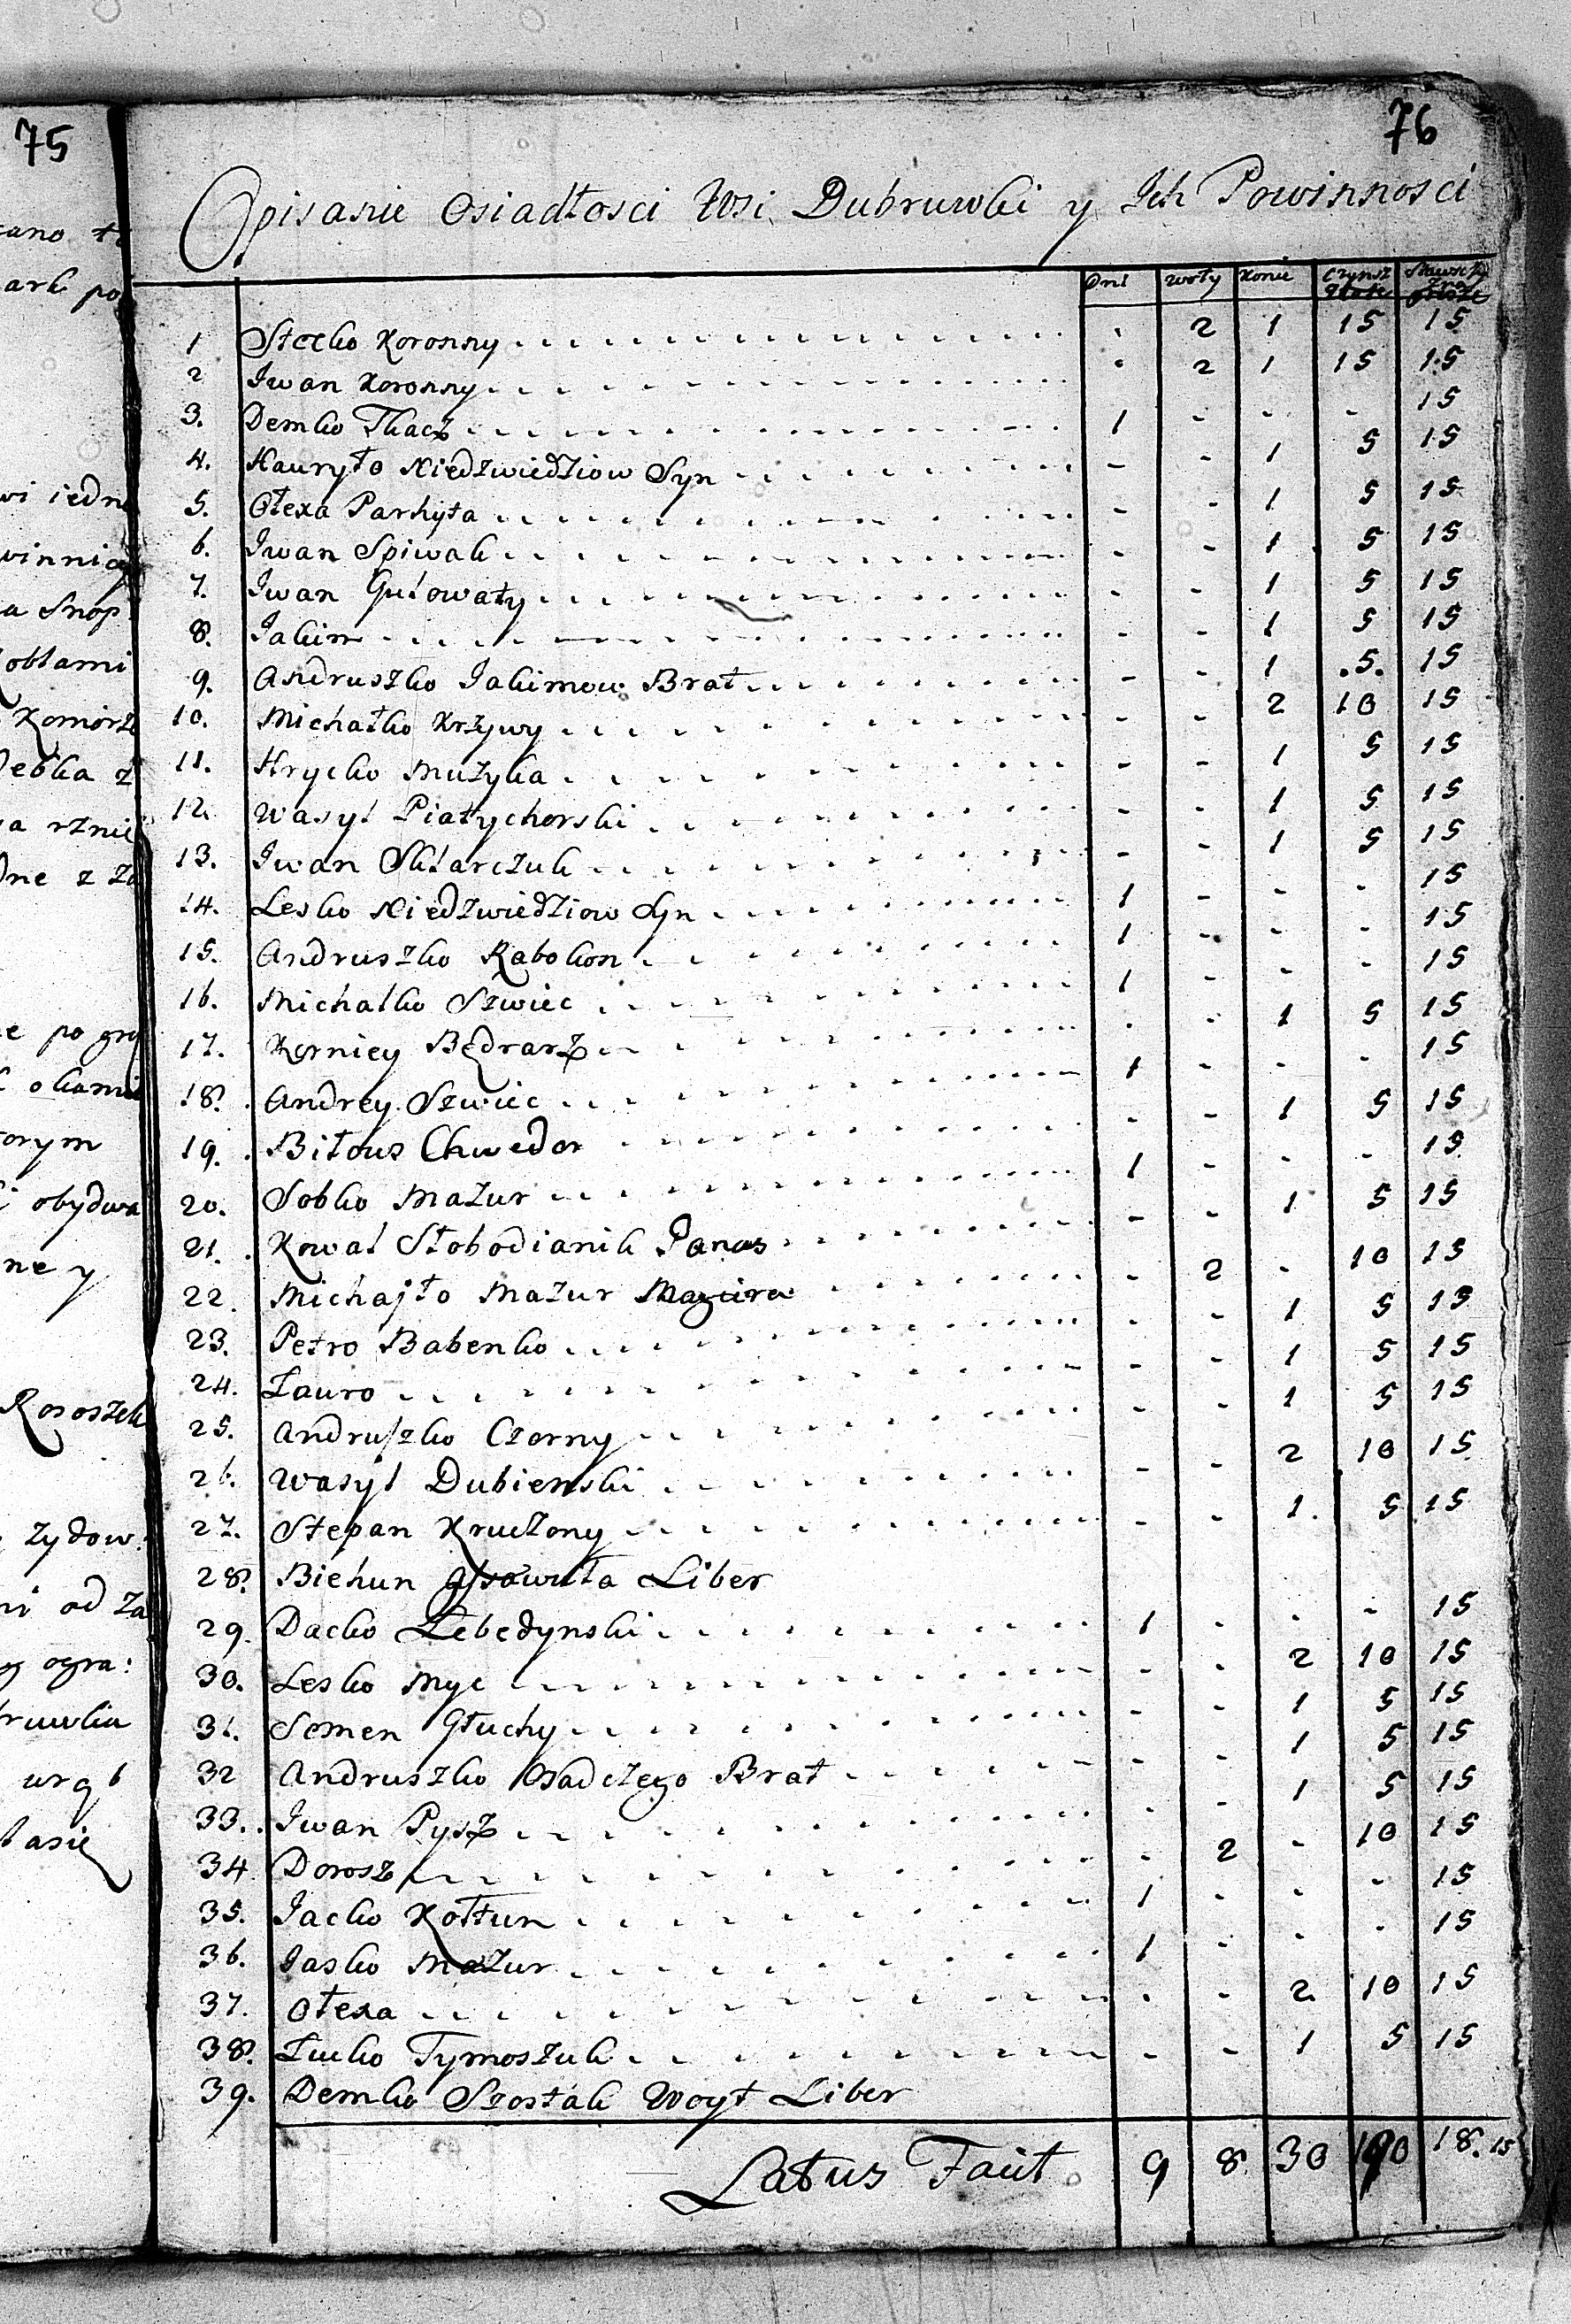 75
76
Opisanie Osiadłosci Wsi Dubruwki y Ich Powinnosci
Dni Woły Konie Czynsz
1 Stecko Koronny . 2 1 15 15
2 Iwan Koronny . 2 1 15 15
3. Demko Tkacz 1 - - - 15
4. Hauryło Niedzwiedziow Syn - - 1 5 15
5. Ołexa Parhyta - - 1 5 15
6. Iwan Spiwak - - 1 5 15
7. Iwan Gulowaty - - 1 5 15
8. Iakim - - 1 5 15
9. Andruszko Iakimow Brat - - 1 .5. 15
10. Michałko Krzywy - - 2 10 15
11. Hrycko Muzyka - - 1 5 15
12. Wasyl Piatychorski - - 1 5 15
13. Iwan Sklarczuk - - 1 5 15
14. Lesko Niedzwiedziow Syn 1 - - - 15
15. Andruszko Rabokon 1 - - - 15
16. Michalko Szwiec 1 - - - 15
17. Korniey Będrarz . - 1 5 15
18. Andrey Szwiec 1 - - - 15
19. Biłous Chwedor - - 1 5 15
20. Sobko Mazur 1 - - - 15
21. Kowal Słobodianik Panas - - 1 5 15
22. Michajło Mazur Mazura - 2 - 10 15
23. Petro Babenko - - 1 5 15
24. Lauro - - 1 5 15
25. Andruszko Czorny - - 1 5 15
26. Wasyl Dubienski - - 2 10 15
27. Stepan Kruczony - - 1 5 15
28. Biehun Liber
29. Dacko Lebedynski 1 - - - 15
30. Lesko Myc - - 2 10 15
31. Semen Głuchy - - 1 5 15
32 Andruszko Osadczego Brat - - 1 5 15
33. Iwan Pysz - - 1 5 15
34 Dorosz - 2 - 10 15
35. Iacko Kołtun 1 - - - 15
36. Iasko Mazur 1 - - - 15
37. Ołexa . - 2 10 15
38. Lucko Tymoszuk - - 1 5 15
39. Demko Szostak Woyt Liber
Latus Facit 9 8 30 190 18.15